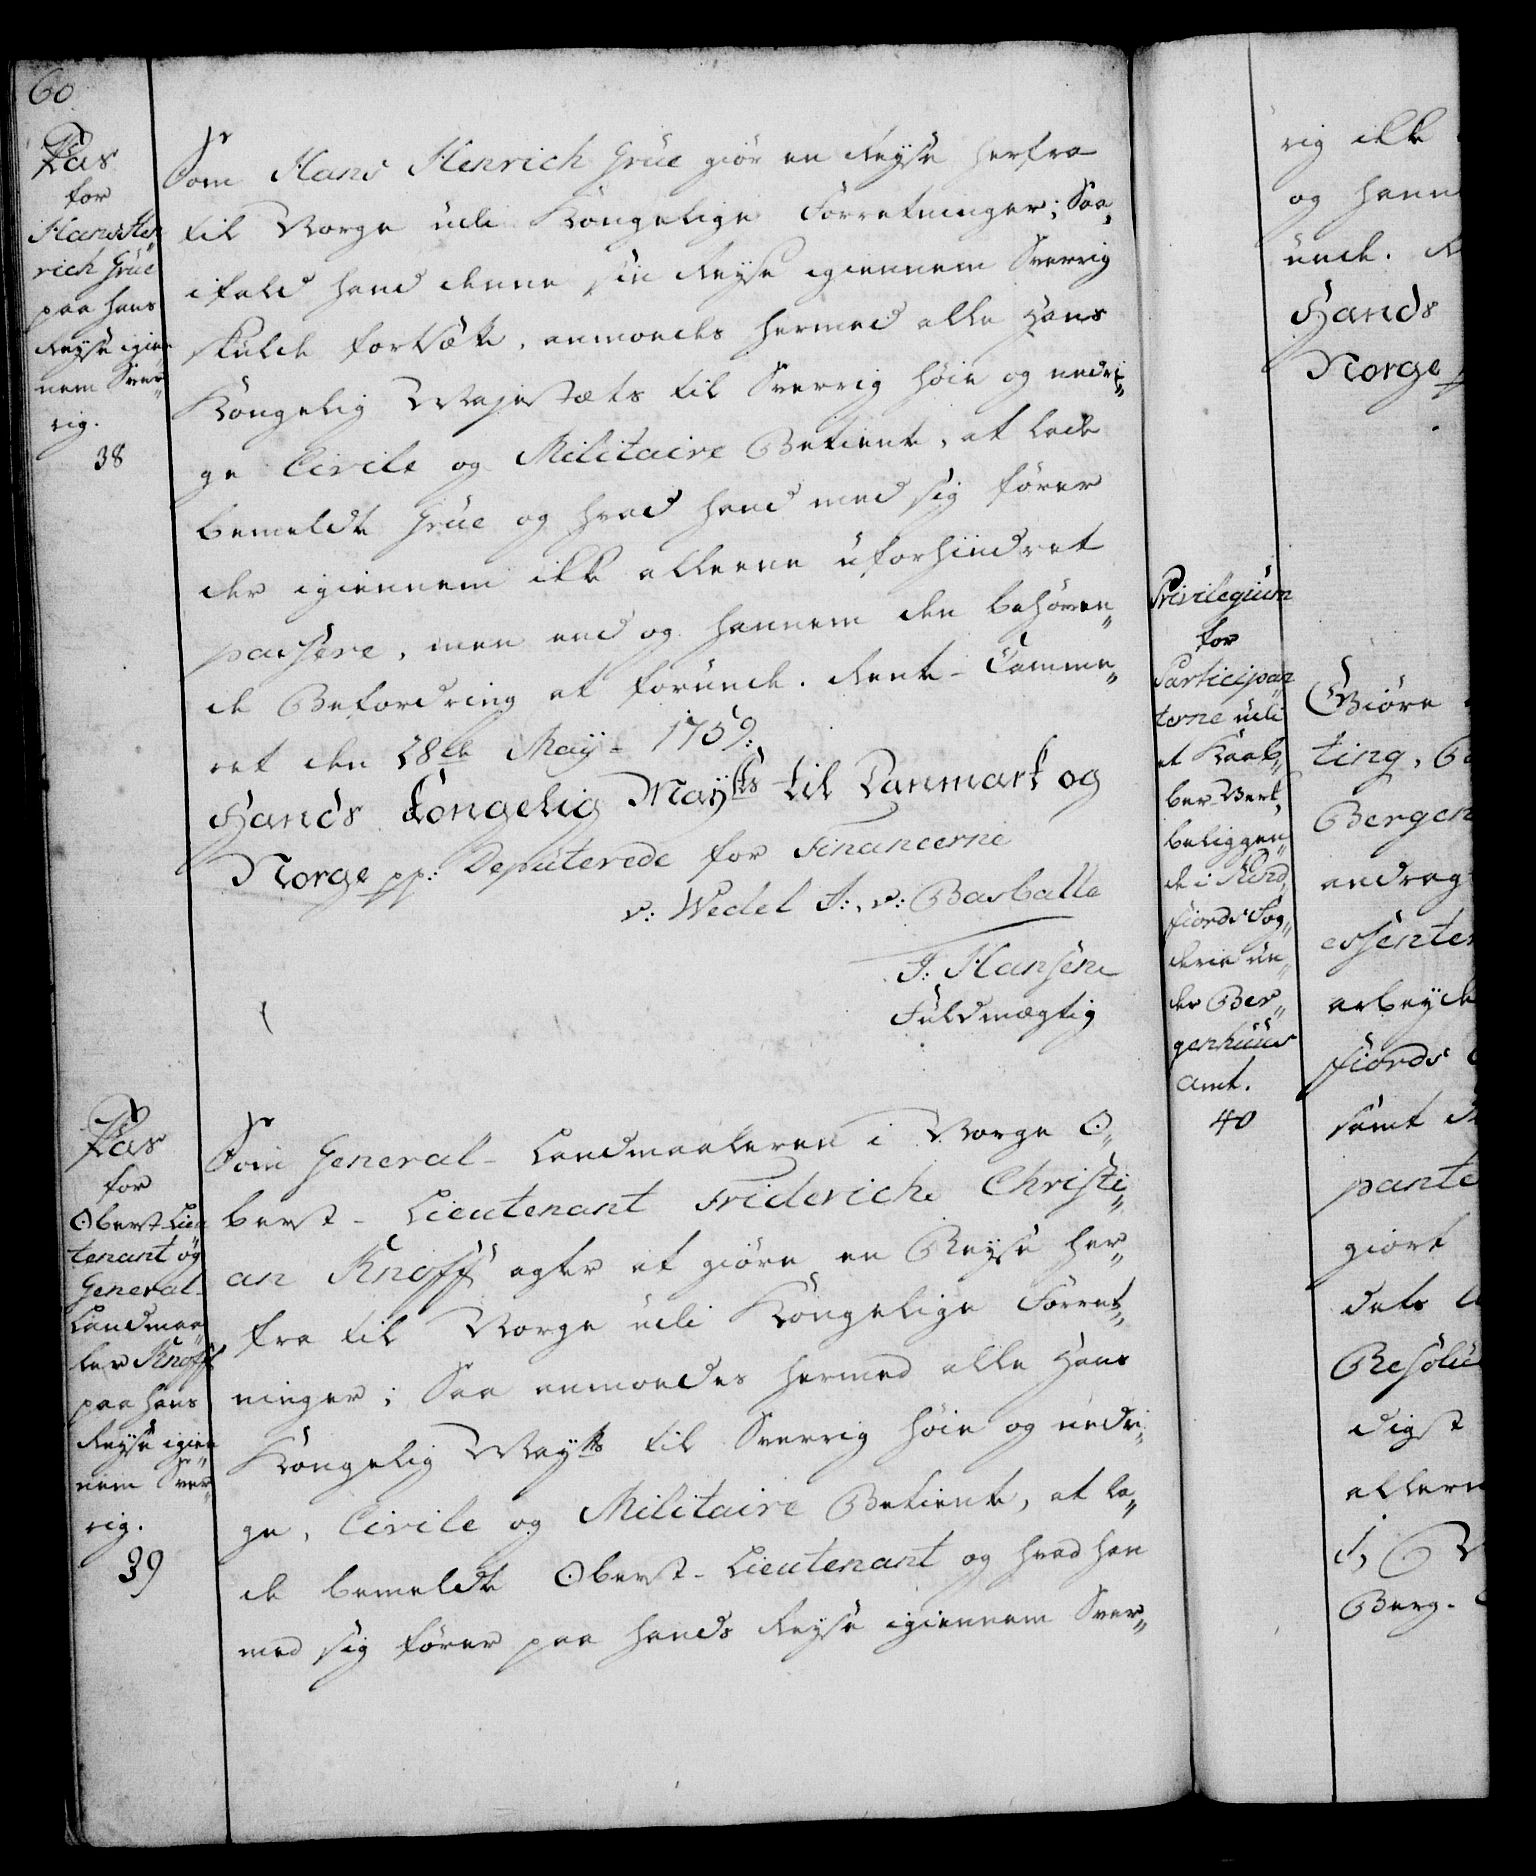 60
Pas
for
Hans Hen„
rich Grüe
paa hans
Reyse igien„
nem Sver„
rig.
38
Som Hans Henrich Grüe giör en Reyse herfra
til Norge udi Kongelige Forretninger; Saa,
ifald hand denne sin Reyse igiennem Sverrig
skulde fortsætte, anmodes hermed alle Hans
Kongelig Majestæts til Sverrig höie og nedri„
ge Civile og Militaire Betiente, at lade
bemeldte Grüe og hvad hand med sig förer
der igiennem ikke alleene uforhindret
passere, men end og hannem den behören„
de Befordring at forunde. Rente-Camme„
ret den 28de May 1759.
Hands Kongelig Maysts til Danmark og
Norge pp: Deputerede for Financerne
v: Wedel F:, v: Barballe
J: Hansen
Fuldmægtig
Pas
for
Oberst-Lieu
tenant og
General-
Landmaa„
ler Knoff
paa hans
Reyse igien„
nem Sver„
rig.
39
Som General-Landmaaleren i Norge O„
berst-Lieutenant Friderich Christi„
an Knoff agter at giöre en Reyse her„
fra til Norge udi Kongelige Forret„
ninger; Saa anmodes hermed alle Hans
Kongelig Mayts til Sverrig höie og nedri„
ge, Civile og Militaire Betiente, at la„
de bemeldte Oberst-Lieutenant og hvad han
med sig förer paa hands Reyse igiennem Sver„
Privilegium
for
Participan„
terne udi
et Kaab„
ber-Verk,
beliggen„
de i Sund„
fiords Fog„
derie un„
der Ber„
genhuus
Amt.
40
rig ikke
og hann
unde. R
Hands
Norge
Giöre
ting, 
Bergen
andrag
essenter
arbeyde
fiords
samt
pante
giort
dets
Resolu
digst
allern
Berg.